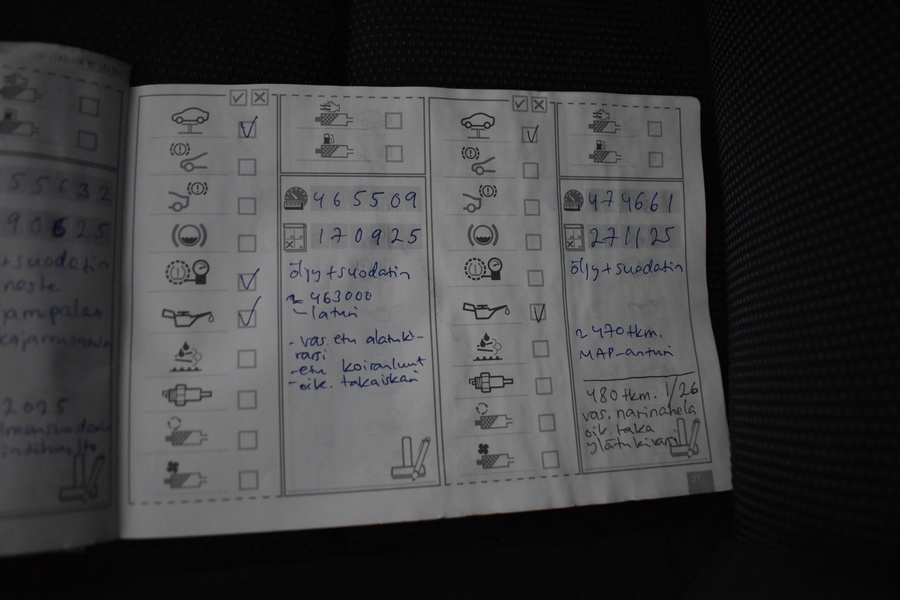 55632
90625
+suodatin
neste
jampalat
2025
465509
170925
öljy+suodatin
~ 463000
- laturi
- vas. etu alatuki-
varsi
- etu koiranluut
- oik. takaiskari
474661
271125
öljy+suodatin
~ 470tkm.
MAP-anturi
480tkm. 1/26
vas. narinahela
oik. taka
ylätukivarsi
31